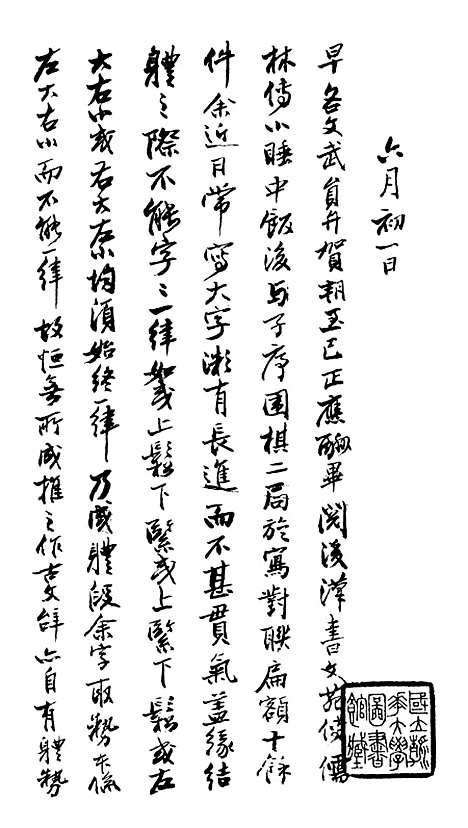 六月初一日
早各文武員弁賀朔至巳正應酬畢閱後漢書文苑傳儒
林傳小睡中飯後与子序圍棋二局旋寫對聯扁額十餘
件余近日常寫大字漸有長進而不甚貫氣盖緣結
體之際不能字〻一律如或上鬆下緊或上緊下鬆或左
大右小或右大左小均須始終一律乃成體段余字取勢本係
左大右小而不能一律故恒無所成推之作古文辞亦自有體勢
國立清華大學
圖書館藏